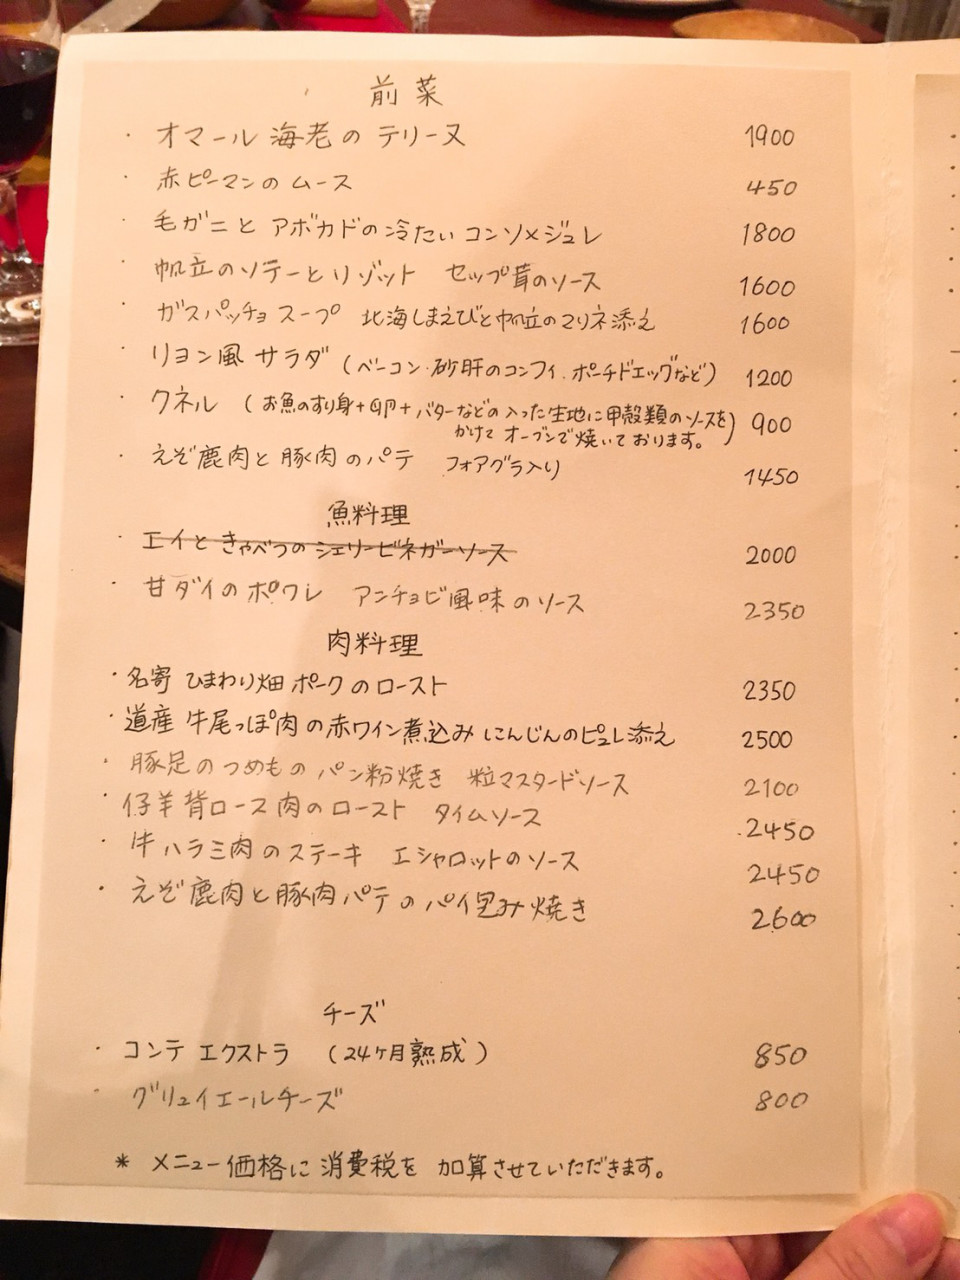 前菜
・ オマール海老の テリーヌ 1900
・ 赤ピーマンの ムース 450
・ 毛ガニと アボカドの冷たい コンソメジュレ 1800
・ 帆立のソテーとリゾット セップ茸のソース 1600
・ ガスパッチョ スープ 北海しまえびと帆立のマリネ添え 1600
・ リヨン風 サラダ (ベーコン・砂肝のコンフィ、ポーチドエッグなど) 1200
・ クネル (お魚のすり身+卵+バターなどの入った生地に甲殻類のソースを 900
かけて オーブンで焼いております。)
・ えぞ鹿肉と 豚肉のパテ フォアグラ入り 1450
魚料理
・ エイと きゃべつの シェリービネガーソース 2000
・ 甘ダイのポワレ アンチョビ風味のソース 2350
肉料理
・ 名寄 ひまわり畑 ポークのロースト 2350
・ 道産 牛尾っぽ肉の赤ワイン煮込み にんじんのピュレ添え 2500
・ 豚足のつめもの パン粉焼き 粒マスタードソース 2100
・ 仔羊背ロース肉のロースト タイムソース 2450
・ 牛ハラミ肉のステーキ エシャロットのソース 2450
・ えぞ鹿肉と豚肉パテのパイ包み焼き 2600
チーズ
・ コンテ エクストラ (24ヶ月熟成) 850
・ グリュイエールチーズ 800
* メニュー価格に消費税を 加算させていただきます。